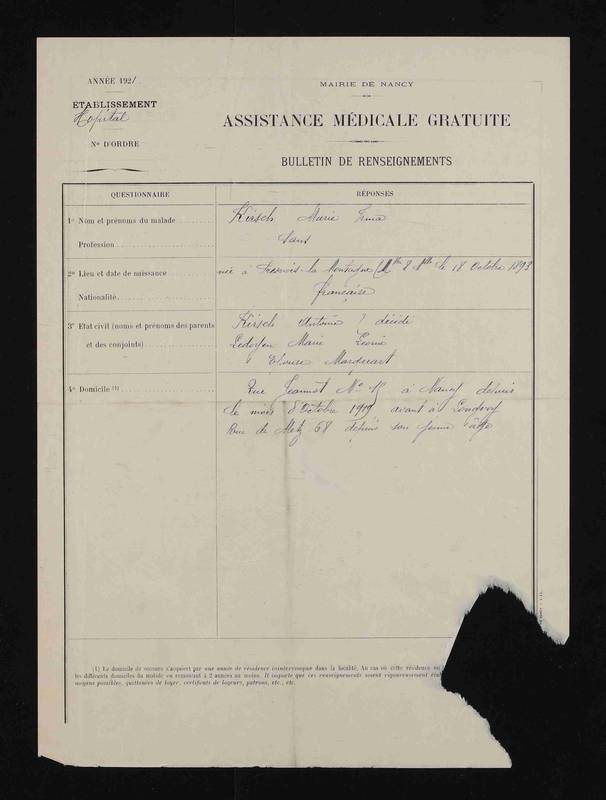 ANNÉE 1921
ÉTABLISSEMENT
Hopital
N° D'ORDRE
MAIRIE DE NANCY
ASSISTANCE MÉDICALE GRATUITE
BULLETIN DE RENSEIGNEMENTS
QUESTIONNAIRE
RÉPONSES
1° Nom et prénoms du malade
Kirsch Marie Irma
Profession
sans
2° Lieu et date de naissance
née à la Montagne (Mthe & Mlle le 18 Octobre 1893
Nationalité
française
3° Etat civil (noms et prénoms des parents
Kirsch Antoine décédé
et des conjoints)
Ledoyen Marie Léonie
Epouse Marquart
4° Domicile (1)
Rue Jeannot N° 15 à Nancy depuis
le mois d'Octobre 1919 avant à Longwy
Rue de Metz 68 depuis son jeune âge
(1) Le domicile de secours s'acquiert par une année de résidence ininterrompue dans la localité. Au cas où cette résidence
les différents domiciles du malade en remontant à 2 années au moins. Il importe que ces renseignements soient rigoureusement
moyens possibles, quittances de loyer, certificats de logeurs, patrons, etc., etc.